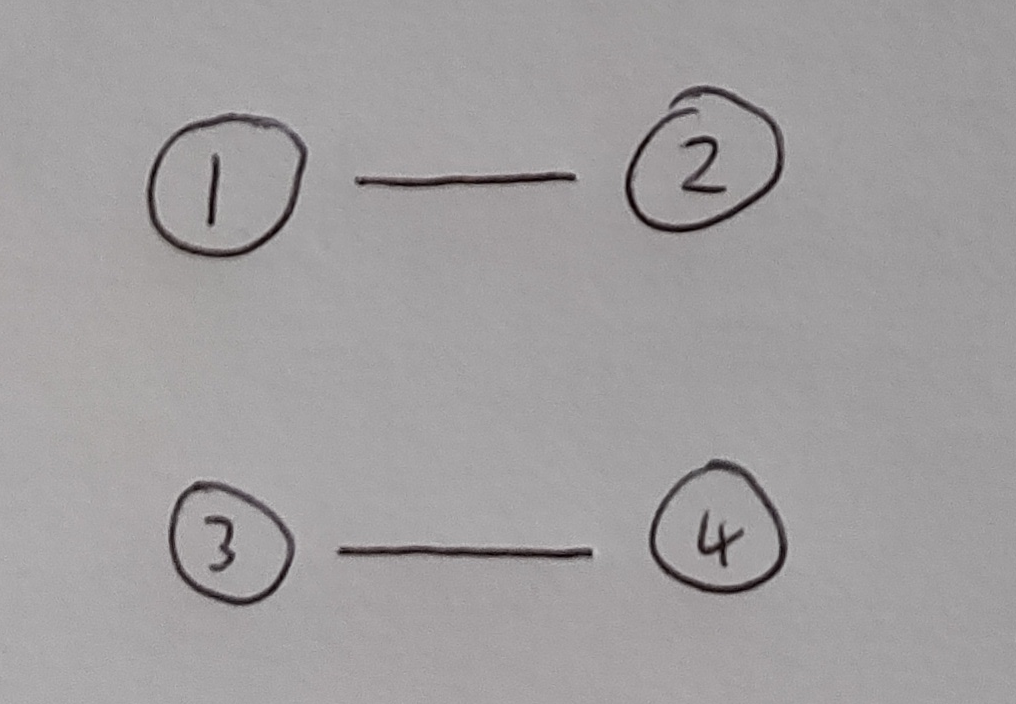 ① — ②
③ — ④